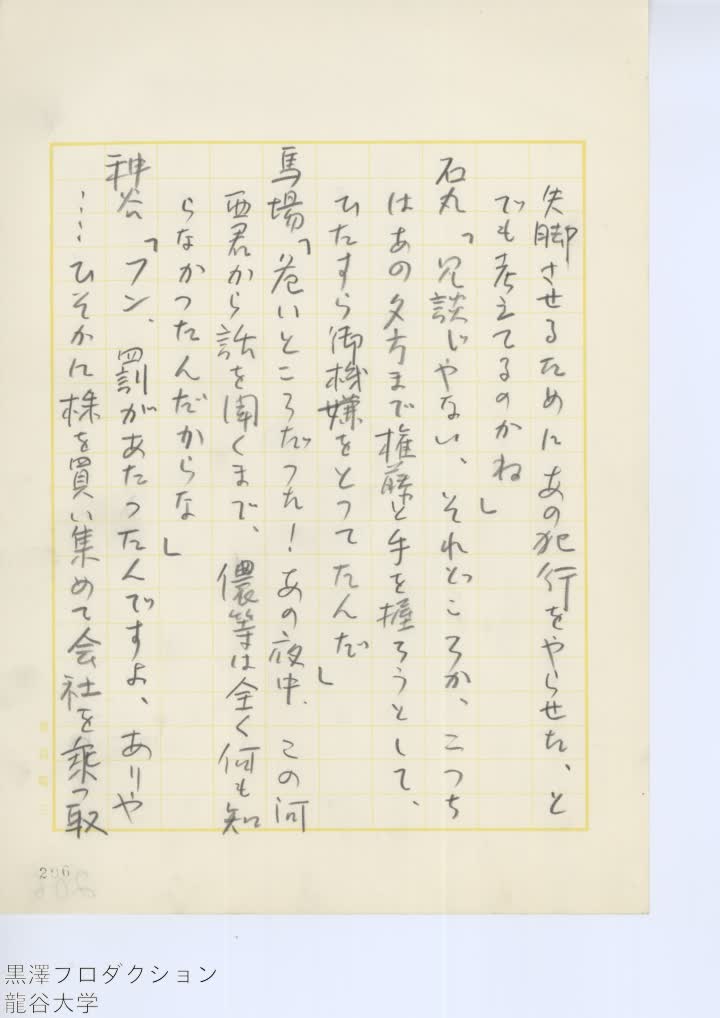 失脚させるためにあの犯行をやらせた、と
でも考えてるのかね」
石丸「冗談じやない、それどころか、こつち
はあの夕方まで権藤と手を握ろうとして、
ひたすら御機嫌をとつてたんだ」
馬場「危いところだつた！あの夜中、この河
西君から話を聞くまで、儂等は全く何も知
らなかつたんだからな」
神谷「フン、罰があたつたんですよ、ありや
……ひそかに株を買い集めて会社を乗つ取
296
黒澤プロダクション
龍谷大学